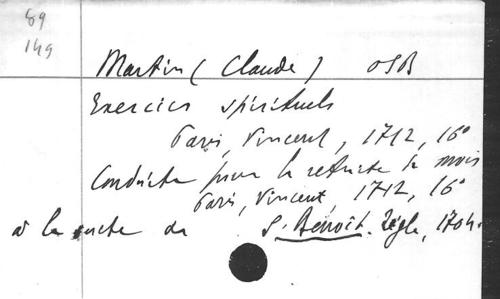 89
149
Martin (Claude) OSB
Exercices spirituels
Paris, Vincent, 1712, 16°
Conduite pour la retraite du mois
Paris, Vincent, 1712, 16°
à la suite de S. Benoît. Règle, 1704.